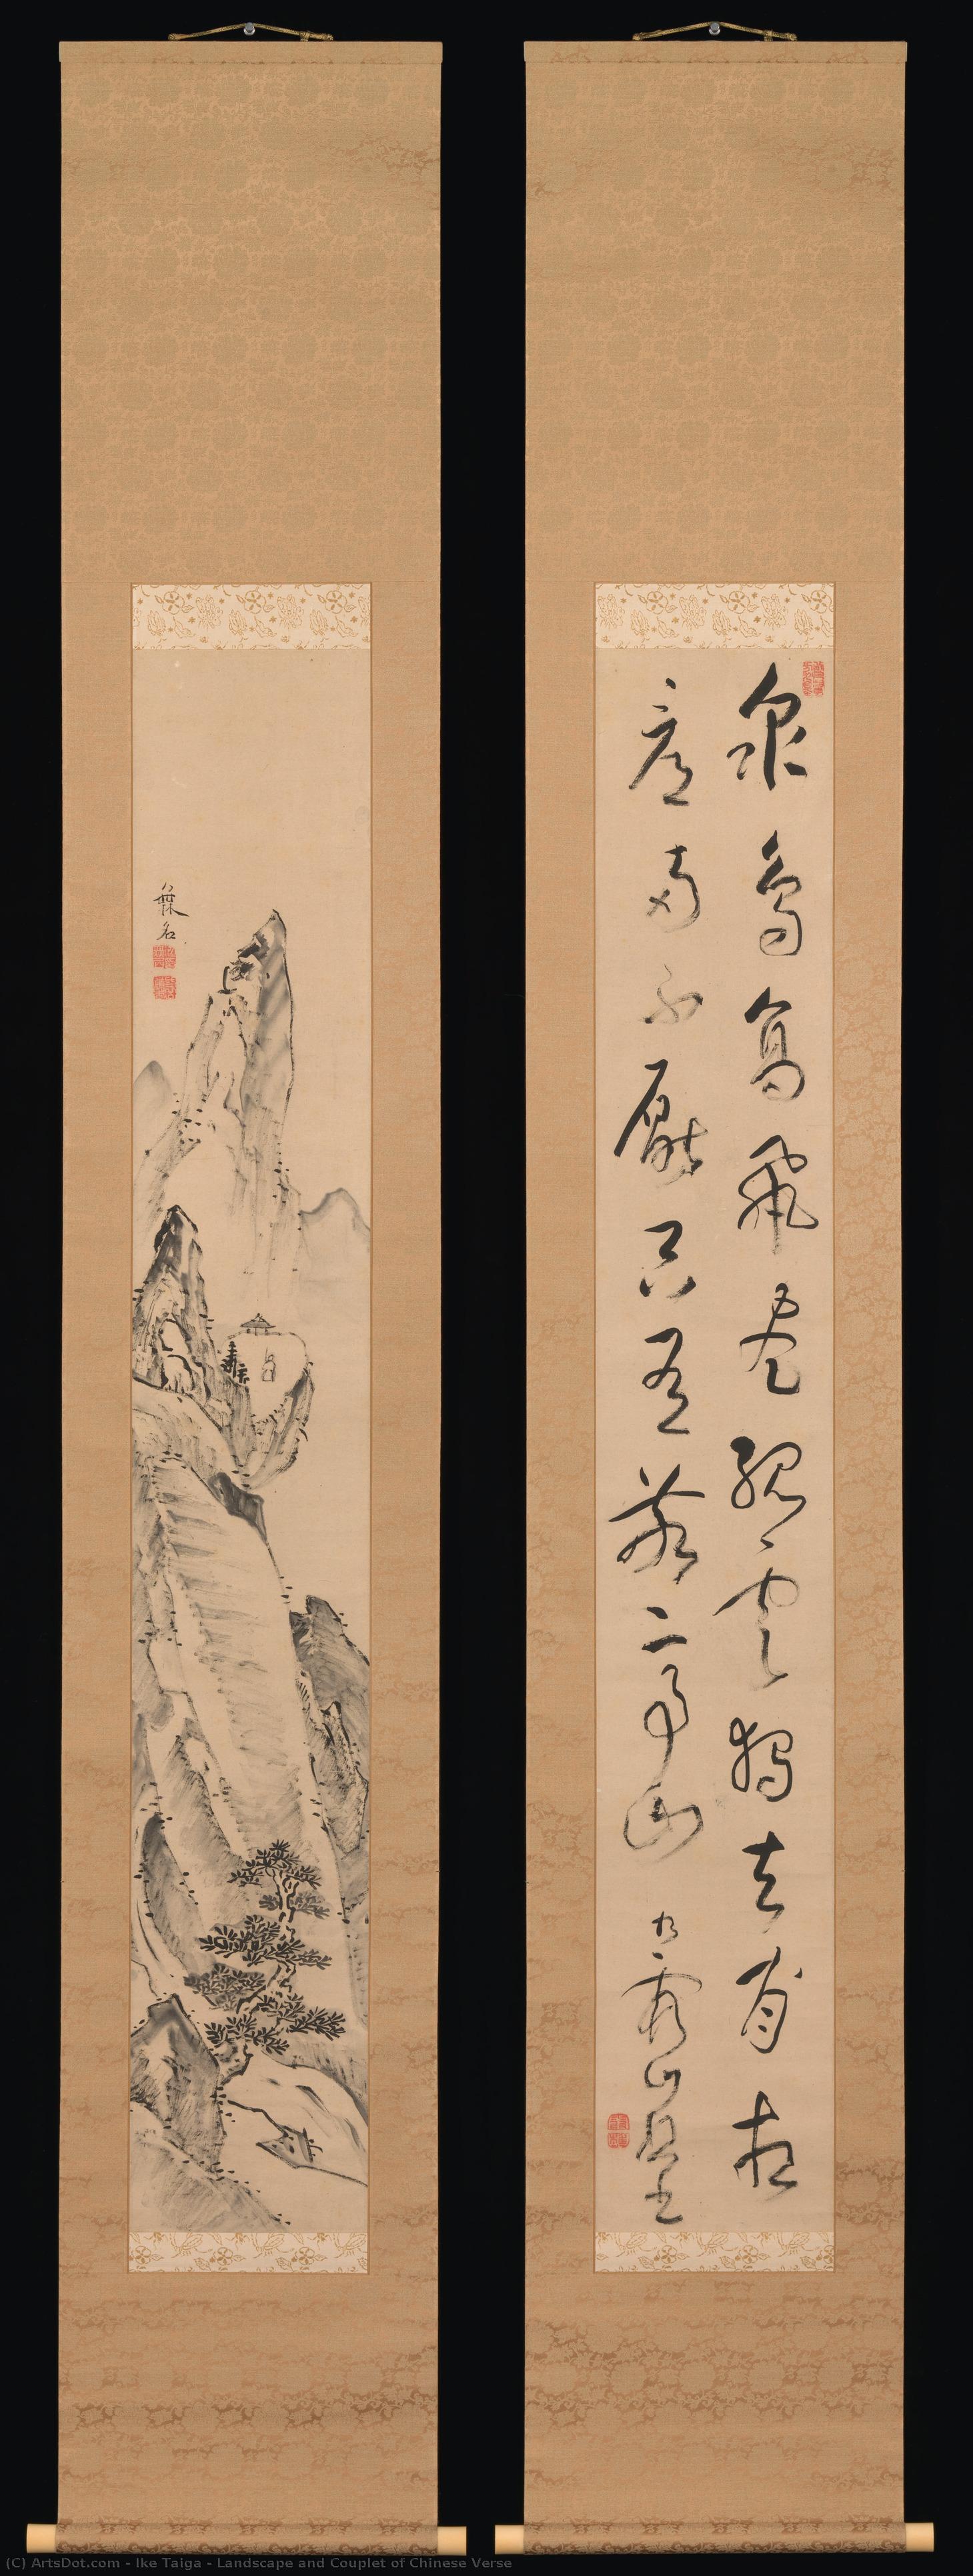 衆鳥高飛盡孤雲獨去閑相
看兩不厭只有敬亭山
九霞山樵
無名
(C) ArtsDot.com - Ike Taiga - Landscape and Couplet of Chinese Verse